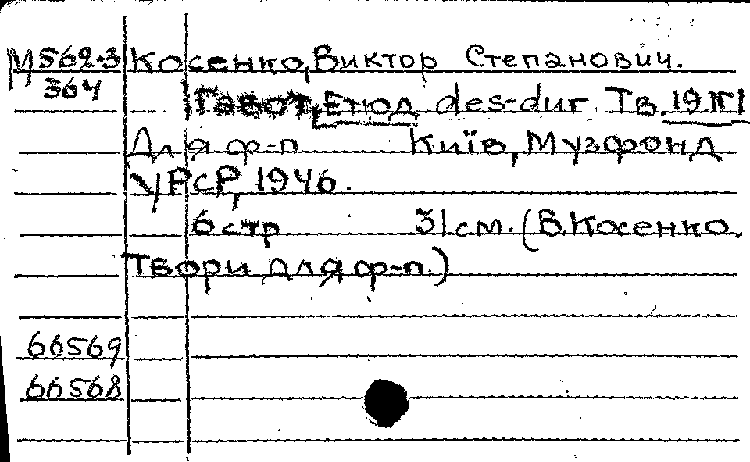 М 562.3 Косенко, Виктор Степанович.
364 Етюд des-dur. Тв. 19 №1
Для ф-п Київ, Музфонд
УРСР, 1946.
6 стр 31 см. (В. Косенко.
Твори для ф-п.)
66569
66568